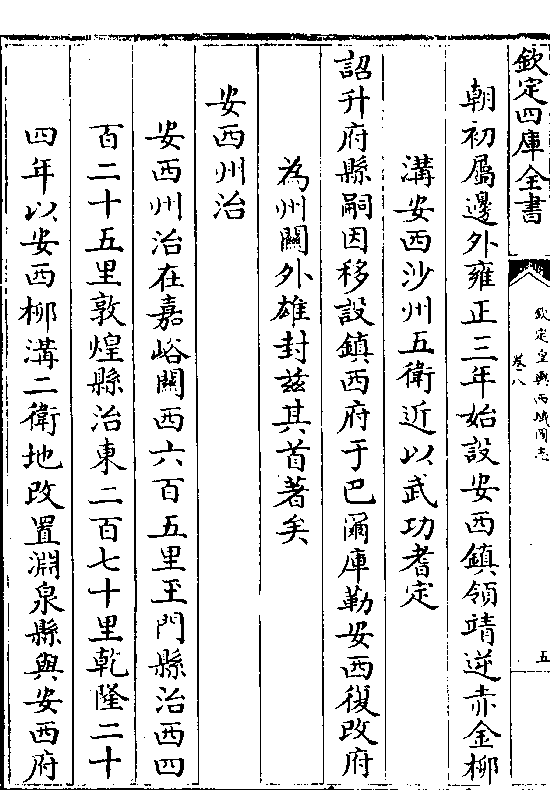 欽定四庫全書
欽定皇輿西域圖志
卷八
五
朝初屬邊外雍正三年始設安西鎮領靖逆赤金柳
溝安西沙州五衛近以武功耆定
詔升府縣嗣因移設鎮西府于巴爾庫勒安西復改府
為州關外雄封茲其首著矣
安西州治
安西州治在嘉峪關西六百五里玉門縣治西四
百二十五里敦煌縣治東二百七十里乾隆二十
四年以安西柳溝二衛地改置淵泉縣與安西府